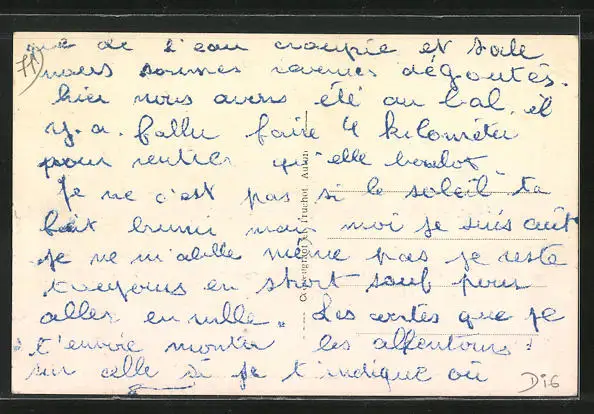 que de l'eau croupie et sale
nous sommes revenues dégoutés.
hier nous avons été au bal. il
y. a. fallu faire 4 kilomètre
pour rentrer qu'elle boulot
Je ne c'est pas si le soleil ta
fait bruni mais moi je suis cuit
je ne m'abille même pas je reste
toujours en short sauf pour
aller en ville. Les cartes que je
t'envoie montre les alkentours:
sur celle si je t'indique où
D16